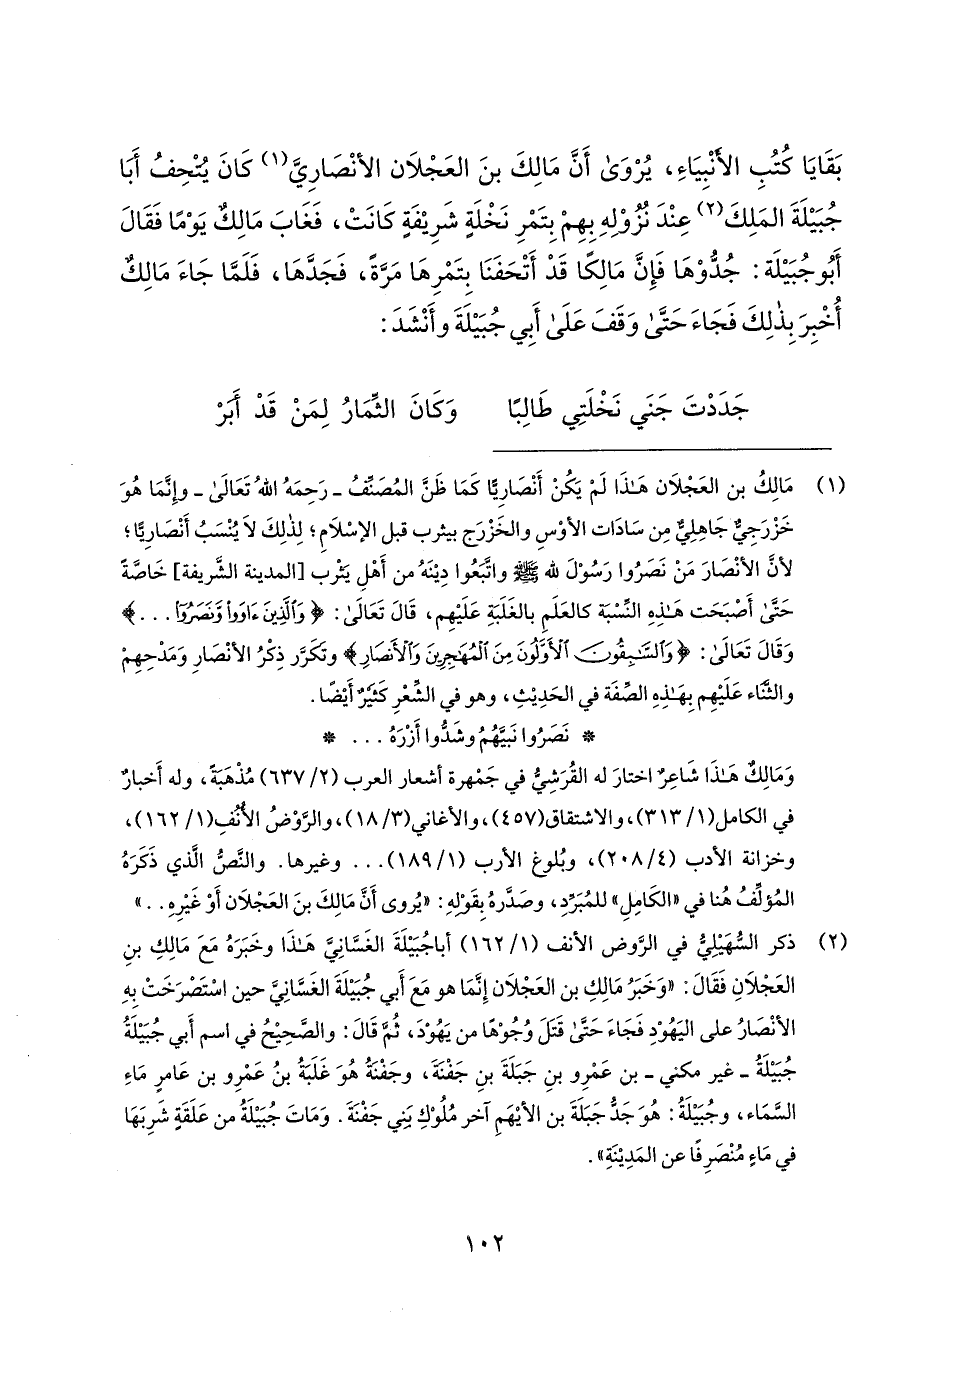 بَقَايَا كُتُبِ الأَنْبِيَاءِ، يُرْوَىٰ أَنَّ مَالِكَ بنَ العَجْلَان الأنْصَارِيَّ(١) كَانَ يُتْحِفُ أَبَا
جُبَيْلَةَ المَلِكَ(٢) عِنْدَ نُزُوْلِهِ بِهِمْ بِتَمْرِ نَخْلَةٍ شَرِيْفَةٍ كَانَتْ، فَغَابَ مَالِكٌ يَوْمًا فَقَالَ
أَبُو جُبَيْلَةَ: جُدُّوْهَا فَإِنَّ مَالِكًا قَدْ أَتْحَفَنَا بِتَمْرِهَا مَرَّةً، فَجَدَّهَا، فَلَمَّا جَاءَ مَالِكٌ
أُخْبِرَ بِذٰلِكَ فَجَاءَ حَتَّىٰ وَقَفَ عَلَىٰ أَبِي جُبَيْلَةَ وأَنْشَدَ:
جَدَدْتَ جَنَي نَخْلَتِي طَالِبًا وَكَانَ الثِّمَارُ لِمَنْ قَدْ أَبَرْ
(١) مَالِكُ بن العَجْلَان هَـٰذَا لَمْ يَكُنْ أَنْصَارِيًّا كَمَا ظَنَّ المُصَنِّفُ - رَحِمَهُ اللهُ تَعَالَىٰ - وإِنَّمَا هُوَ
خَزْرَجِيٌّ جَاهِلِيٌّ مِن سَادَات الأَوْسِ والخَزْرَج بيثرب قبل الإسْلَامِ؛ لِذٰلِكَ لاَ يُنْسَبُ أَنْصَارِيًّا؛
لأنَّ الأنْصَارَ مَنْ نَصَرُوا رَسُوْلَ لله ﷺ واتَّبَعُوا دِيْنَهُ من أَهْلِ يَثْرِب [المدينة الشَّريفة] خَاصَّةً
حَتَّىٰ أَصْبَحَت هَـٰذِهِ النِّسْبَة كالعَلَمِ بِالغَلَبَةِ عَلَيْهِم، قَالَ تَعَالَىٰ: ﴿ وَٱلَّذِينَ ءَاوَوا۟ وَّنَصَرُوٓا۟ . . . ﴾
وَقَالَ تَعَالَىٰ: ﴿ وَٱلسَّـٰبِقُونَ ٱلْأَوَّلُونَ مِنَ ٱلْمُهَـٰجِرِينَ وَٱلْأَنصَارِ ﴾ وتكَرَّر ذِكْرُ الأنْصَارِ وَمَدْحِهِم
والثَّناء عَلَيْهِم بِهَـٰذِهِ الصِّفَة في الحَدِيْثِ، وهو في الشِّعْرِ كَثِيْرٌ أَيْضًا.
* نَصَرُوا نَبِيَّهُمُ وشَدُّوا أَزْرَهُ . . . *
وَمَالِكٌ هَـٰذَا شَاعِرٌ اختارَ له القُرَشِيُّ في جَمْهرة أشعار العرب (٢/ ٦٣٧) مُذْهَبَةً، وله أخبارٌ
في الكامل (١/ ٣١٣)، والاشتقاق (٤٥٧)، والأغاني (٣/ ١٨)، والرَّوْضُ الأُنُفِ (١/ ١٦٢)،
وخزانة الأدب (٤/ ٢٠٨)، وبُلوغ الأرب (١/ ١٨٩). . . وغيرها. والنَّصُّ الَّذي ذَكَرَهُ
المُؤلِّفُ هُنا في «الكَامِلِ» للمُبَرِّدِ، وصَدَّرهُ بِقَوْلِهِ: «يُروى أَنَّ مَالِكَ بنَ العَجْلَان أَوْ غَيْرِهِ . .»
(٢) ذكر السُّهَيْلِيُّ في الرَّوض الأنف (١/ ١٦٢) أباجُبَيْلَةَ الغَسَّانِيَّ هَـٰذَا وخَبَرَهُ مَعَ مَالِكِ بنِ
العَجْلَانِ فَقَالَ: «وَخَبَرُ مَالِكِ بن العَجْلَان إِنَّمَا هو مَعَ أَبي جُبَيْلَةَ الغَسَّانِيَّ حين اسْتَصْرَخَتْ بِهِ
الأنْصَارُ على اليَهُودِ فَجَاءَ حَتَّىٰ قَتَلَ وُجُوْهًا من يَهُوْدَ، ثُمَّ قَالَ: والصَّحِيْحُ في اسم أَبي جُبَيْلَةُ
جُبَيْلَةُ - غير مكني - بن عَمْرِو بنِ جَبَلَة بنِ جَفْنَةَ، وجَفْنَةُ هُوَ غَلَبَةُ بنُ عَمْرِو بن عامرِ مَاءِ
السَّمَاء، وجُبَيْلَةُ: هُوَ جَدُّ جَبَلَة بن الأيْهَمِ آخر مُلُوْكِ بَنِي جَفْنَةَ. وَمَاتَ جُبَيْلَةُ من عَلَقَةٍ شَرِبَهَا
في مَاءٍ مُنْصَرِفًا عن المَدِيْنَةِ».
١٠٢